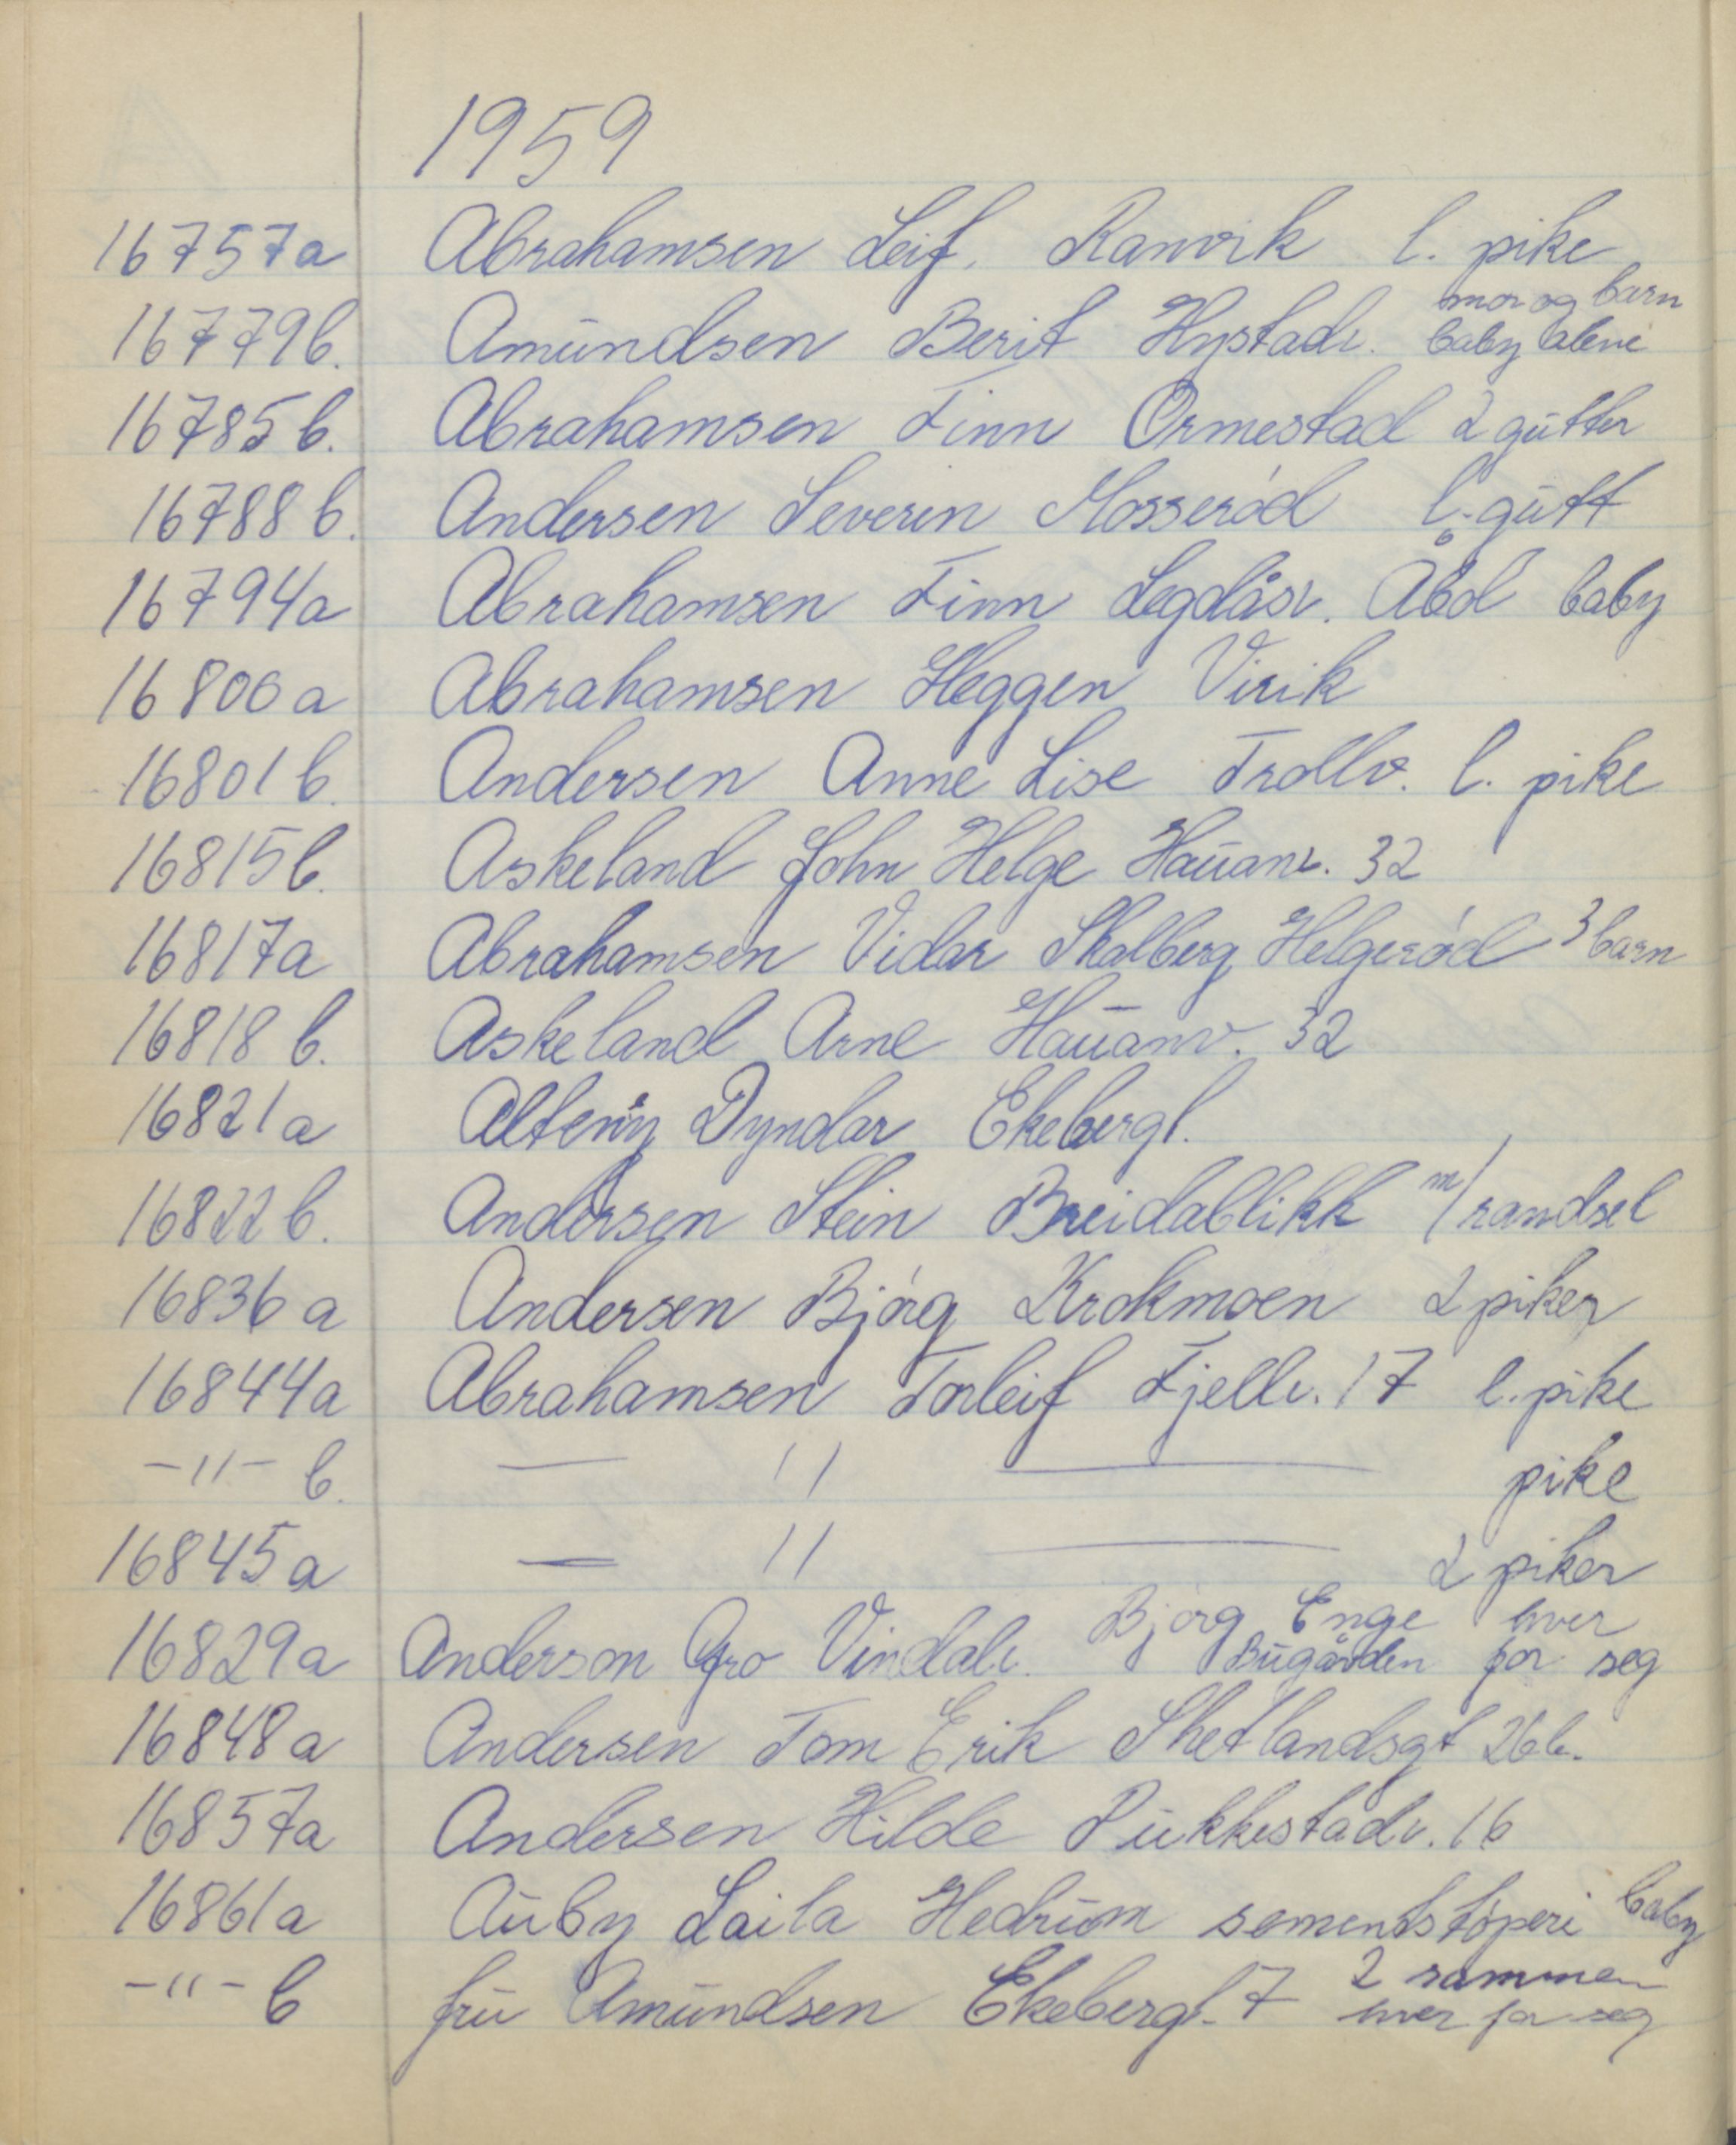 1959
16757a Abrahamsen Leif. Ranvik l. pike
16779b. Amundsen Berit Hystadv. mor og barn baby alene
16785b. Abrahamsen Finn Ormestad 2 gutter
16788b. Andersen Severin Mosserød l. gutt
16794a Abrahamsen Finn Legdåsv. Åbol baby
16800a Abrahamsen Heggen Virik
16801b. Andersen Anne Lise Trollv. l. pike
16815b. Askeland John Helge Hauanv. 32
16817a Abrahamsen Vidar Skolberg Helgerød 3 barn
16818b. Askeland Arne Hauanv. 32
16821a Dyndar Ekebergl.
16822b. Andersen Stein Breidablikk m/randsel
16836a Andersen Bjørg Krokmoen 2 piker
16844a Abrahamsen Torleif Fjellv. 17 l. pike
-"- b. — " — pike
16845a — " — 2 piker
16829a Anderson Gro Vindalv. Bjørg Enge Bugården hver for seg
16848a Andersen Tom Erik Shetlandsgt 26b.
16857a Andersen Hilde Pukkestadv. 16
16861a Auby Laila Hedrum sementstøperi baby
-"- b fru Amundsen Ekebergl. 7 2 sammen hver for seg